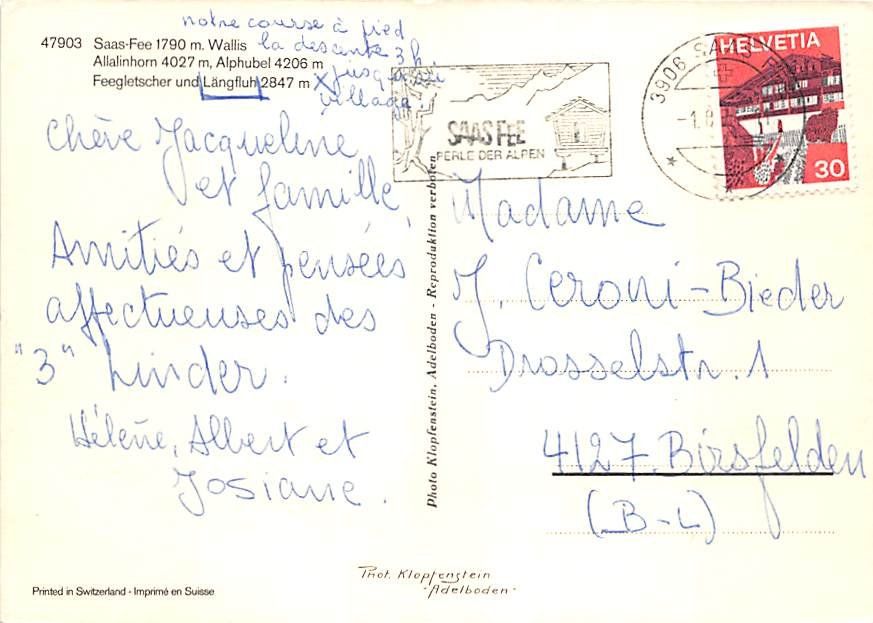 notre course à pied
la descente 3 h
jusqu'au
village!
47903 Saas-Fee 1790 m. Wallis
Allalinhorn 4027 m, Alphubel 4206 m
Feegletscher und Längfluh 2847 m X
Chère Jacqueline
et famille,
Amitiés et pensées
affectueuses des
"3" Linder.
Hélène, Albert et
Josiane.
SAAS FEE
PERLE DER ALPEN
3906 SAAS
HELVETIA
30
Photo Klopfenstein, Adelboden - Reproduktion verboten
Madame
J. Ceroni-Bieder
Drosselstr. 1
4127 Birsfelden
(B-L)
Phot. Klopfenstein
Adelboden
Printed in Switzerland - Imprimé en Suisse